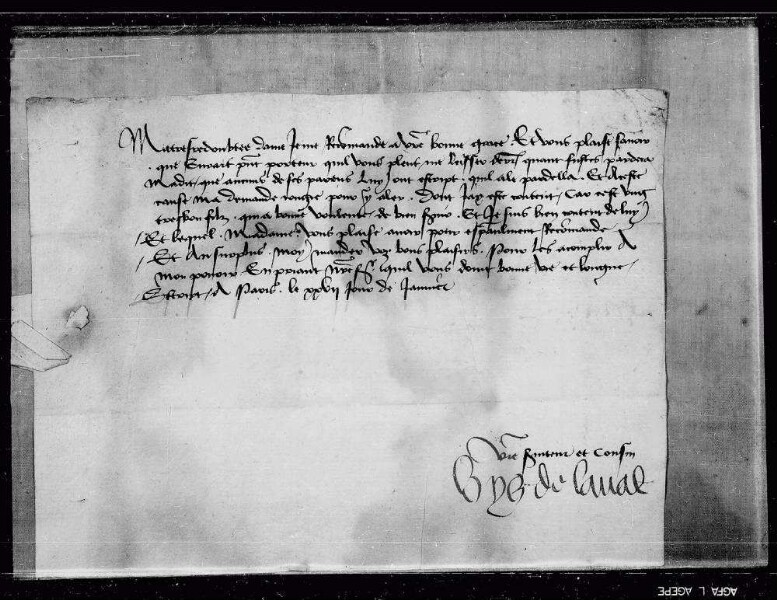 Ma tresredoubtee dame Je me Recomande a vre bonne grace. Et vous plaise savoir
que Benoit pnt porteur quil vous pleut me laisser derr quant fustes pardeca
Ma dit que aucuns de ses parens luy ont escript quil ale pardella. Et a ceste
cause ma demande conge pour y aler. Dont Jay este content. Car cest ung
tresbon filz. qui a bonne voulente de bien. Et Je suis bien content de luy
Et lequel. Madame. vous plaise avoir pour especialment Recomande
Et Au surplus. moy mander voz bons plaisirs. Pour les acomplir A
mon povoir. En priant nre sr. lquil vous doint bonne vie et longue.
Escript. A Paris. le xxvii Jour de Janvier
Vre serviteur et Cousin
Guy de laval
AGFA L AGEPE